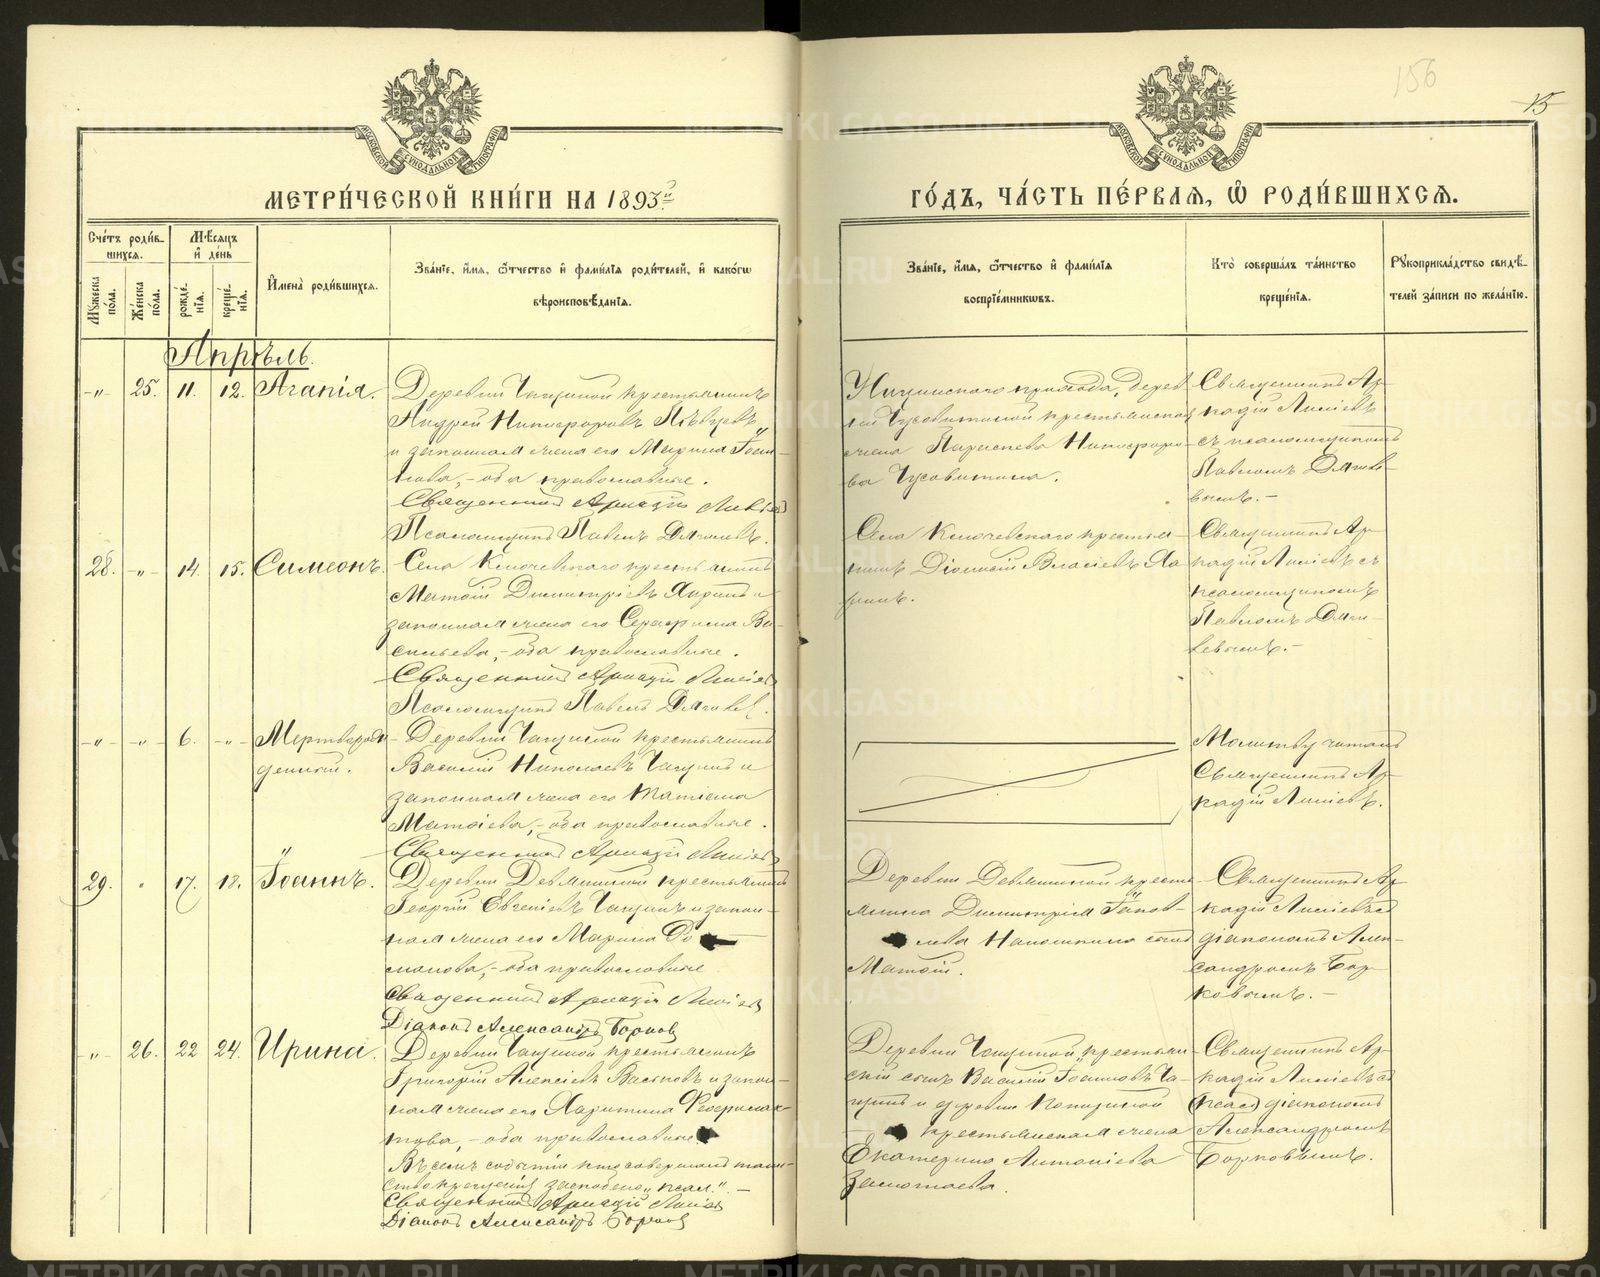 156
15
МОСКОВСКОЙ СѴНОДАЛЬНОЙ ТИПОГРАФІИ
МОСКОВСКОЙ СѴНОДАЛЬНОЙ ТИПОГРАФІИ
МЕТРИ́ЧЕСКОЙ КНИ́ГИ НА 1893й
ГО́ДЪ, ЧА́СТЬ ПЕ́РВАЯ, Ѽ РОДИ́ВШИХСЯ.
Сче́тъ роди́в-
шихся.
Мꙋ́жеска по́ла.
Же́нска по́ла.
Мѣ́сяцъ и҆ де́нь
рожде́нїѧ.
креще́нїѧ.
И҆мена̀ роди́вшихся.
Зва́нїе, и҆́мя, ѻ҆́тчество и҆ фами́лїя роди́телей, и҆ како́гѡ
вѣроисповѣ́данїя.
Зва́нїе, и҆́мя, ѻ҆́тчество и҆ фами́лїя
воспрїе́мникѡвъ.
Кто̀ соверша́лъ та́инство
креще́нїя.
Рꙋкоприкла́дство свидѣ́-
телей за́писи по жела́нїю.
Апрѣль.
-„- 25. 11. 12. Агапія.
Деревни Чащиной крестьянинъ
Андрей Никифоровъ Пѣвцевъ
и законная жена его Марина Іоан-
нова, - оба православные.
Священникъ Аркадій
Псаломщикъ Павелъ Дягилевъ.
прихода, дерев
ни Чусовитиной крестьянская
жена Параскева Никифоро-
ва Чусовитина.
Священникъ Ар-
кадій
съ псаломщикомъ
Павломъ Дягиле-
вымъ. -
28. -„- 14. 15. Симеонъ.
Села Ключевскаго крестьянинъ
Матѳій Димитріевъ и
законная жена его Серафима Ва-
сильева, - оба православные.
Священникъ Аркадій
Псаломщикъ Павелъ Дягилев.
Села Ключевскаго крестья-
нинъ Діонисій Власіевъ
Священникъ Ар-
кадій съ
псаломщикомъ
Павломъ Дяги-
левымъ. -
-„- -„- 6. -„- Мертворож-
денный.
Деревни Чащиной крестьянинъ
Василій Николаевъ Чащинъ и
законная жена его Татіана
Матѳіева, - оба православные.
Священникъ Аркадій
Молитву читалъ
Священникъ Ар-
кадій
29. „ 17. 18. Іоаннъ.
Деревни Девяшиной крестьянинъ
Георгій Евгеніевъ Чащинъ и закон-
ная жена его Марина Ро
манова, - оба православные
Священникъ Аркадій
Діаконъ Александръ Борков
Деревни Девяшиной кресть-
янина Димитрія Іаков-
лева сынъ
Матѳій.
Священникъ Ар-
кадій съ
діакономъ Алек-
сандромъ Бор-
ковымъ. -
-„- 26. 22 24. Ирина.
Деревни Чащиной крестьянинъ
Григорій Алексіевъ Васьковъ и закон-
ная жена его Харитина
това, - оба православные
Въ семъ событіи кто совершалъ таин-
ство крещенія заскоблено „псал." -
Священникъ Аркадій
Діаконъ Александръ Борков
Деревни Чащиной, крестьян-
скій сынъ Василій Іоанновъ Ча-
щинъ и деревни
крестьянская жена
Екатерина Антоніева
Священникъ Ар-
кадій съ
(псал) діакономъ
Александромъ
Борковымъ.